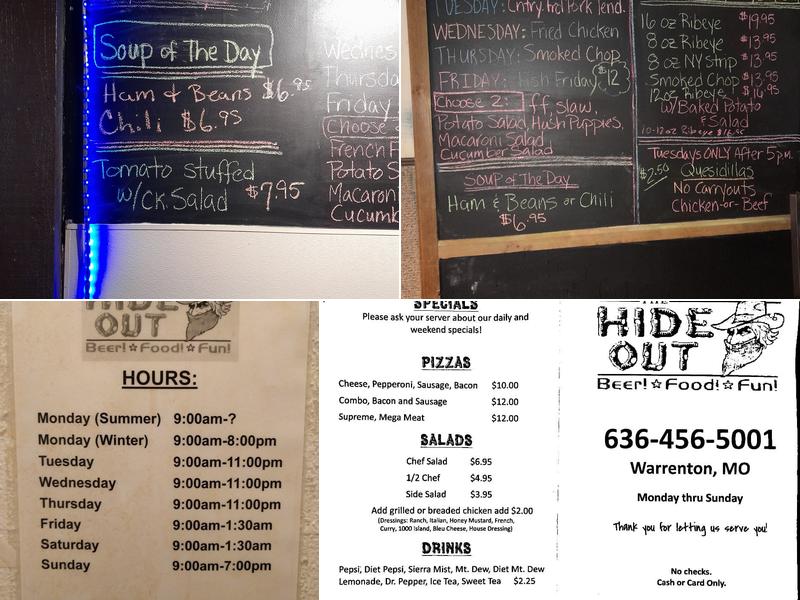 Soup of The Day
Ham & Beans $6.95
Chili $6.95
Tomato stuffed
w/ck Salad $7.95
Wednes
Thursda
Friday
Choose
French F
Potato S
Macaron
Cucumb
TUESDAY: Cntry frd Pork tend.
WEDNESDAY: Fried Chicken
THURSDAY: Smoked Chop
FRIDAY: Fish Friday $12
Choose 2: ff, slaw,
Potato Salad, Hush Puppies,
Macaroni Salad
Cucumber Salad
SOUP OF The DAY
HAM & Beans or Chili
$6.95
16 oz Ribeye $19.95
8 oz Ribeye $13.95
8 oz NY Strip $13.95
Smoked Chop $13.95
12oz Ribeye $14.95
w/Baked Potato
& Salad
10-12 oz Ribeye $16.95
Tuesdays ONLY After 5pm
$2.50 Quesidillas
No Carryouts
Chicken-or-Beef
HIDE
OUT
Beer!☆Food!☆Fun!
HOURS:
Monday (Summer) 9:00am-?
Monday (Winter) 9:00am-8:00pm
Tuesday 9:00am-11:00pm
Wednesday 9:00am-11:00pm
Thursday 9:00am-11:00pm
Friday 9:00am-1:30am
Saturday 9:00am-1:30am
Sunday 9:00am-7:00pm
SPECIALS
Please ask your server about our daily and
weekend specials!
PIZZAS
Cheese, Pepperoni, Sausage, Bacon $10.00
Combo, Bacon and Sausage $12.00
Supreme, Mega Meat $12.00
SALADS
Chef Salad $6.95
1/2 Chef $4.95
Side Salad $3.95
Add grilled or breaded chicken add $2.00
(Dressings: Ranch, Italian, Honey Mustard, French,
Curry, 1000 Island, Bleu Cheese, House Dressing)
DRINKS
Pepsi, Diet Pepsi, Sierra Mist, Mt. Dew, Diet Mt. Dew
Lemonade, Dr. Pepper, Ice Tea, Sweet Tea $2.25
THE
HIDE
OUT
Beer!☆Food!☆Fun!
636-456-5001
Warrenton, MO
Monday thru Sunday
Thank you for letting us serve you!
No checks.
Cash or Card Only.